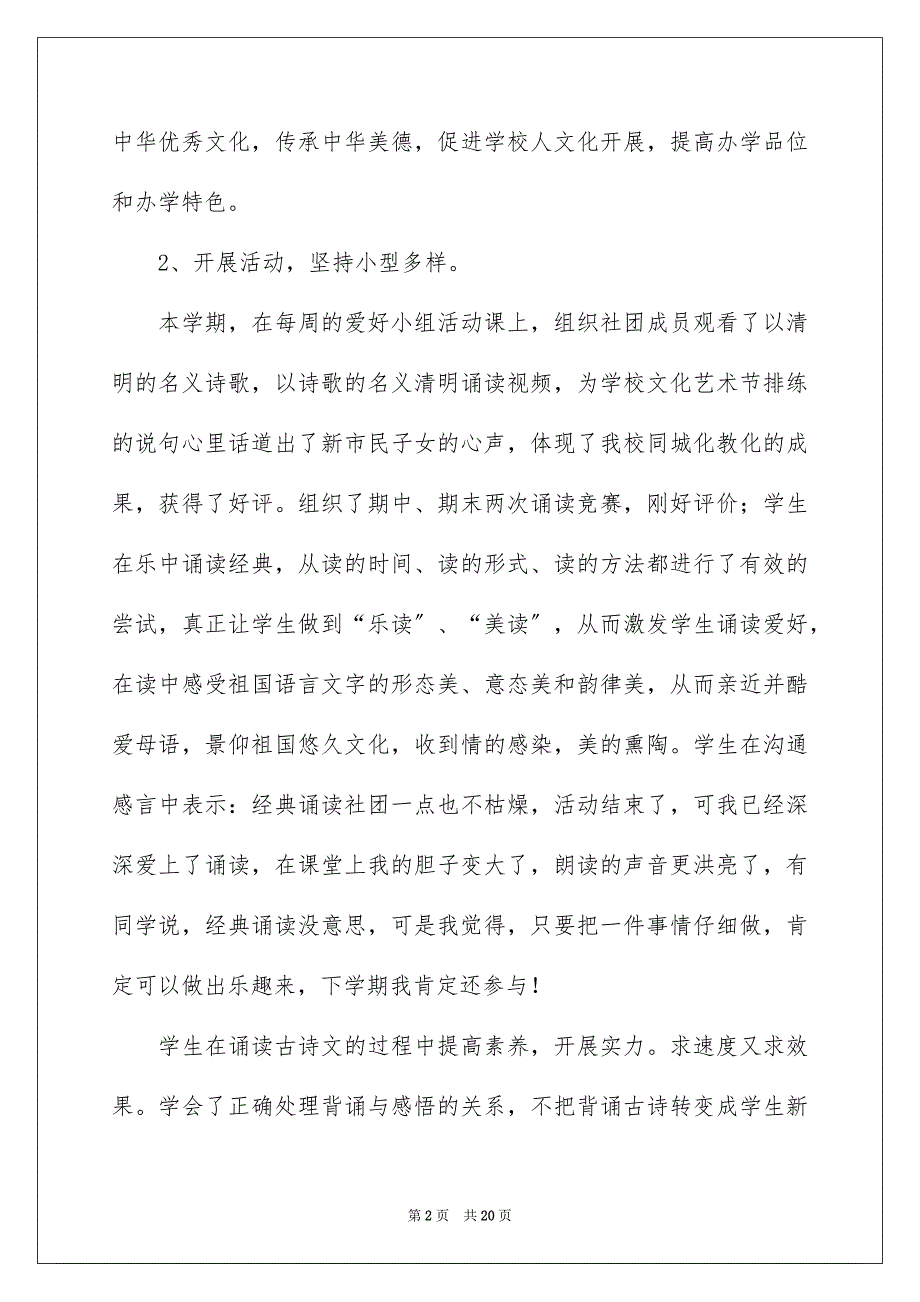 中华优秀文化，传承中华美德，促进学校人文化开展，提高办学品位
和办学特色。
2、开展活动，坚持小型多样。
本学期，在每周的爱好小组活动课上，组织社团成员观看了以清
明的名义诗歌，以诗歌的名义清明诵读视频，为学校文化艺术节排练
的说句心里话道出了新市民子女的心声，体现了我校同城化教化的成
果，获得了好评。组织了期中、期末两次诵读竞赛，刚好评价；学生
在乐中诵读经典，从读的时间、读的形式、读的方法都进行了有效的
尝试，真正让学生做到“乐读〞、“美读〞，从而激发学生诵读爱好，
在读中感受祖国语言文字的形态美、意态美和韵律美，从而亲近并酷
爱母语，景仰祖国悠久文化，收到情的感染，美的熏陶。学生在沟通
感言中表示：经典诵读社团一点也不枯燥，活动结束了，可我已经深
深爱上了诵读，在课堂上我的胆子变大了，朗读的声音更洪亮了，有
同学说，经典诵读没意思，可是我觉得，只要把一件事情仔细做，肯
定可以做出乐趣来，下学期我肯定还参与！
学生在诵读古诗文的过程中提高素养，开展实力。求速度又求效
果。学会了正确处理背诵与感悟的关系，不把背诵古诗转变成学生新
第 2 页 共 20 页